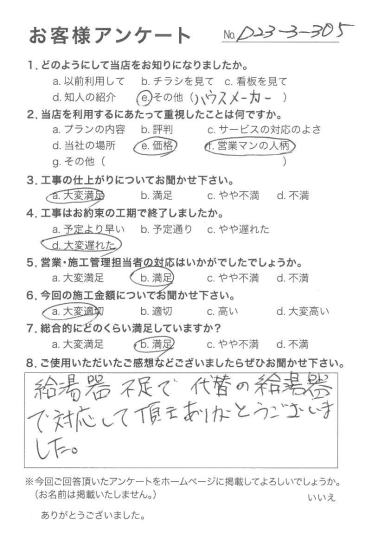 お客様アンケート No. D23-3-305
1. どのようにして当店をお知りになりましたか。
a. 以前利用して b. チラシを見て c. 看板を見て
d. 知人の紹介 e. その他 (ハウスメーカー)
2. 当店を利用するにあたって重視したことは何ですか。
a. プランの内容 b. 評判 c. サービスの対応のよさ
d. 当社の場所 e. 価格 f. 営業マンの人柄
g. その他 ( )
3. 工事の仕上がりについてお聞かせ下さい。
a. 大変満足 b. 満足 c. やや不満 d. 不満
4. 工事はお約束の工期で終了しましたか。
a. 予定より早い b. 予定通り c. やや遅れた
d. 大変遅れた
5. 営業・施工管理担当者の対応はいかがでしたでしょうか。
a. 大変満足 b. 満足 c. やや不満 d. 不満
6. 今回の施工金額についてお聞かせ下さい。
a. 大変適切 b. 適切 c. 高い d. 大変高い
7. 総合的にどのくらい満足していますか?
a. 大変満足 b. 満足 c. やや不満 d. 不満
8. ご使用いただいたご感想などございましたらぜひお聞かせ下さい。
給湯器 不足で 代替の給湯器
で対応して頂きありがとうございま
した。
※今回ご回答頂いたアンケートをホームページに掲載してよろしいでしょうか。
(お名前は掲載いたしません。) いいえ
ありがとうございました。